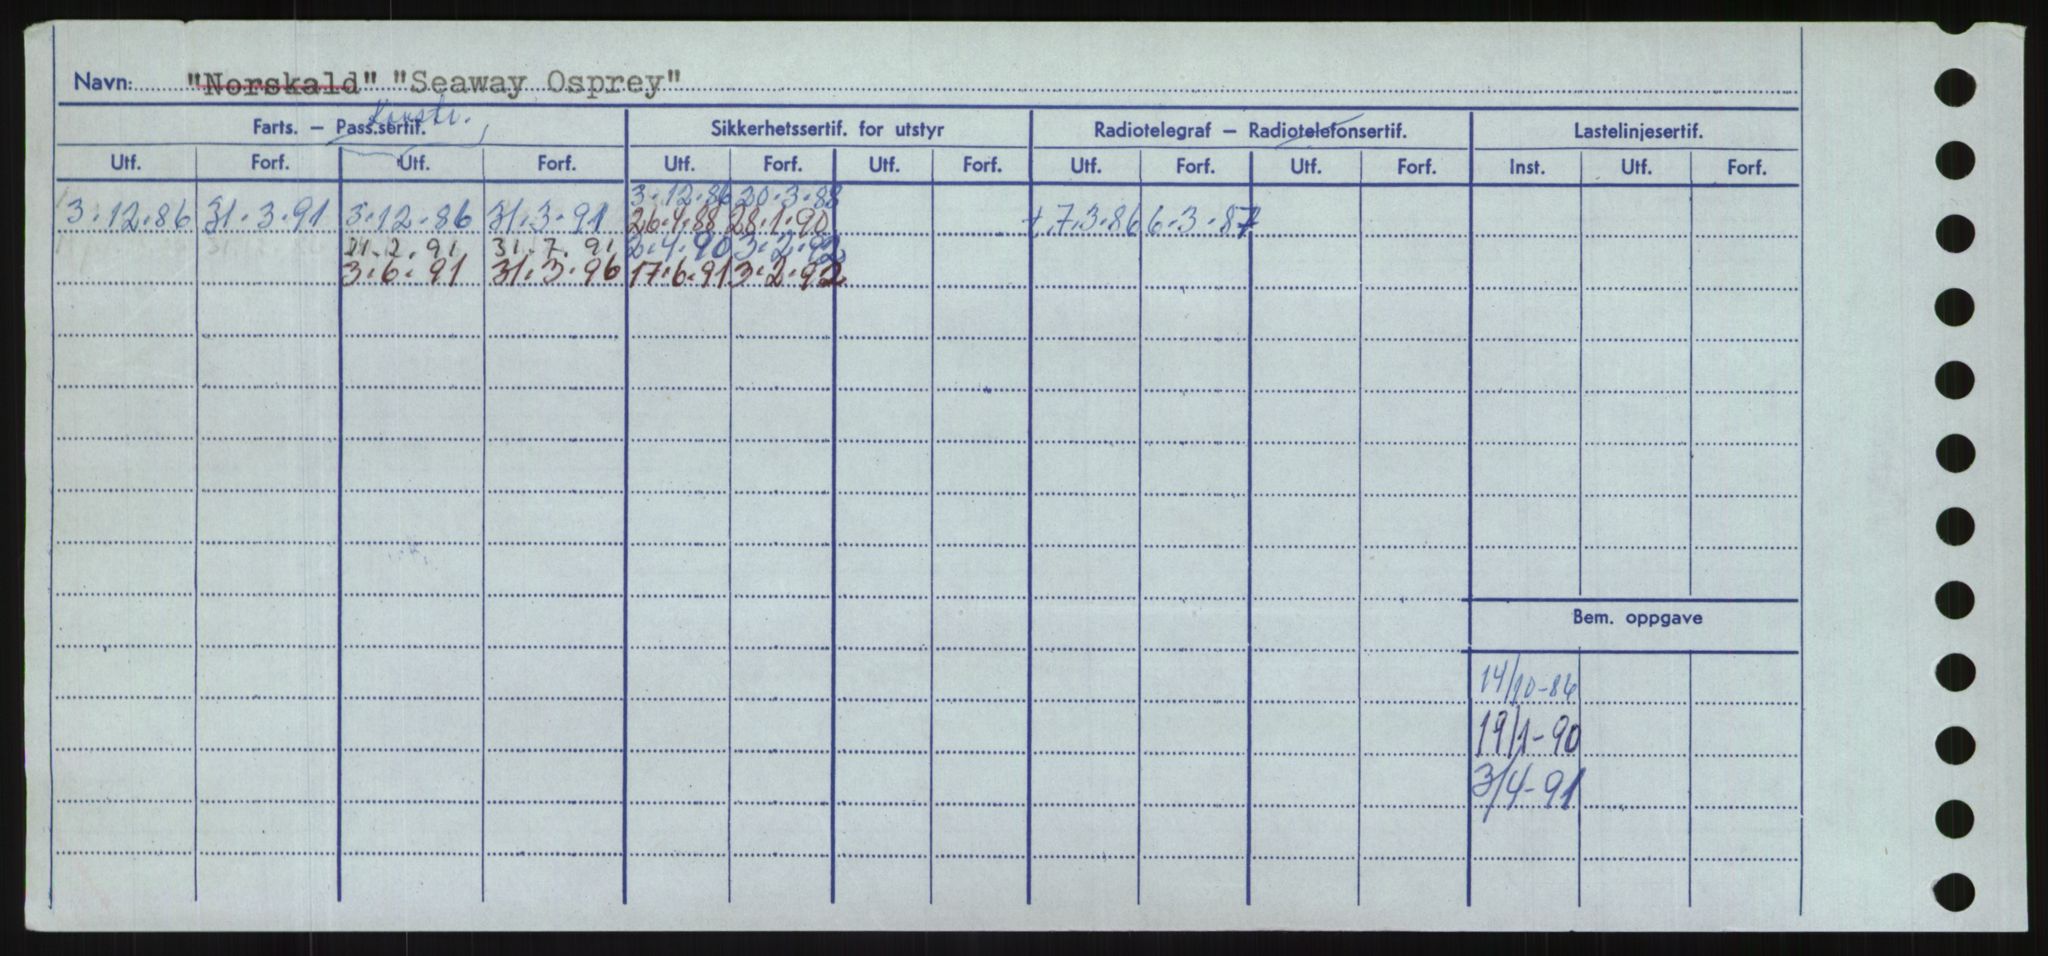 Navn: "Norskald" "Seaway Osprey"
Konstr.
Farts. — Pass.sertif. Sikkerhetssertif. for utstyr Radiotelegraf — Radiotelefonsertif. Lastelinjesertif.
Utf. Forf. Utf. Forf. Utf. Forf. Utf. Forf. Utf. Forf. Utf. Forf. Inst. Utf. Forf.
3.12.86 20.3.88
3.12.86 31.3.91 3.12.86 31.3.91 26.4.88 28.1.90 t.7.3.86 6.3.87
21.2.91 31.7.91 2.4.90 3.2.92
3.6.91 31.3.96 17.6.91 3.2.92
Bem. oppgave
14/10-86
19/1-90
3/4-91